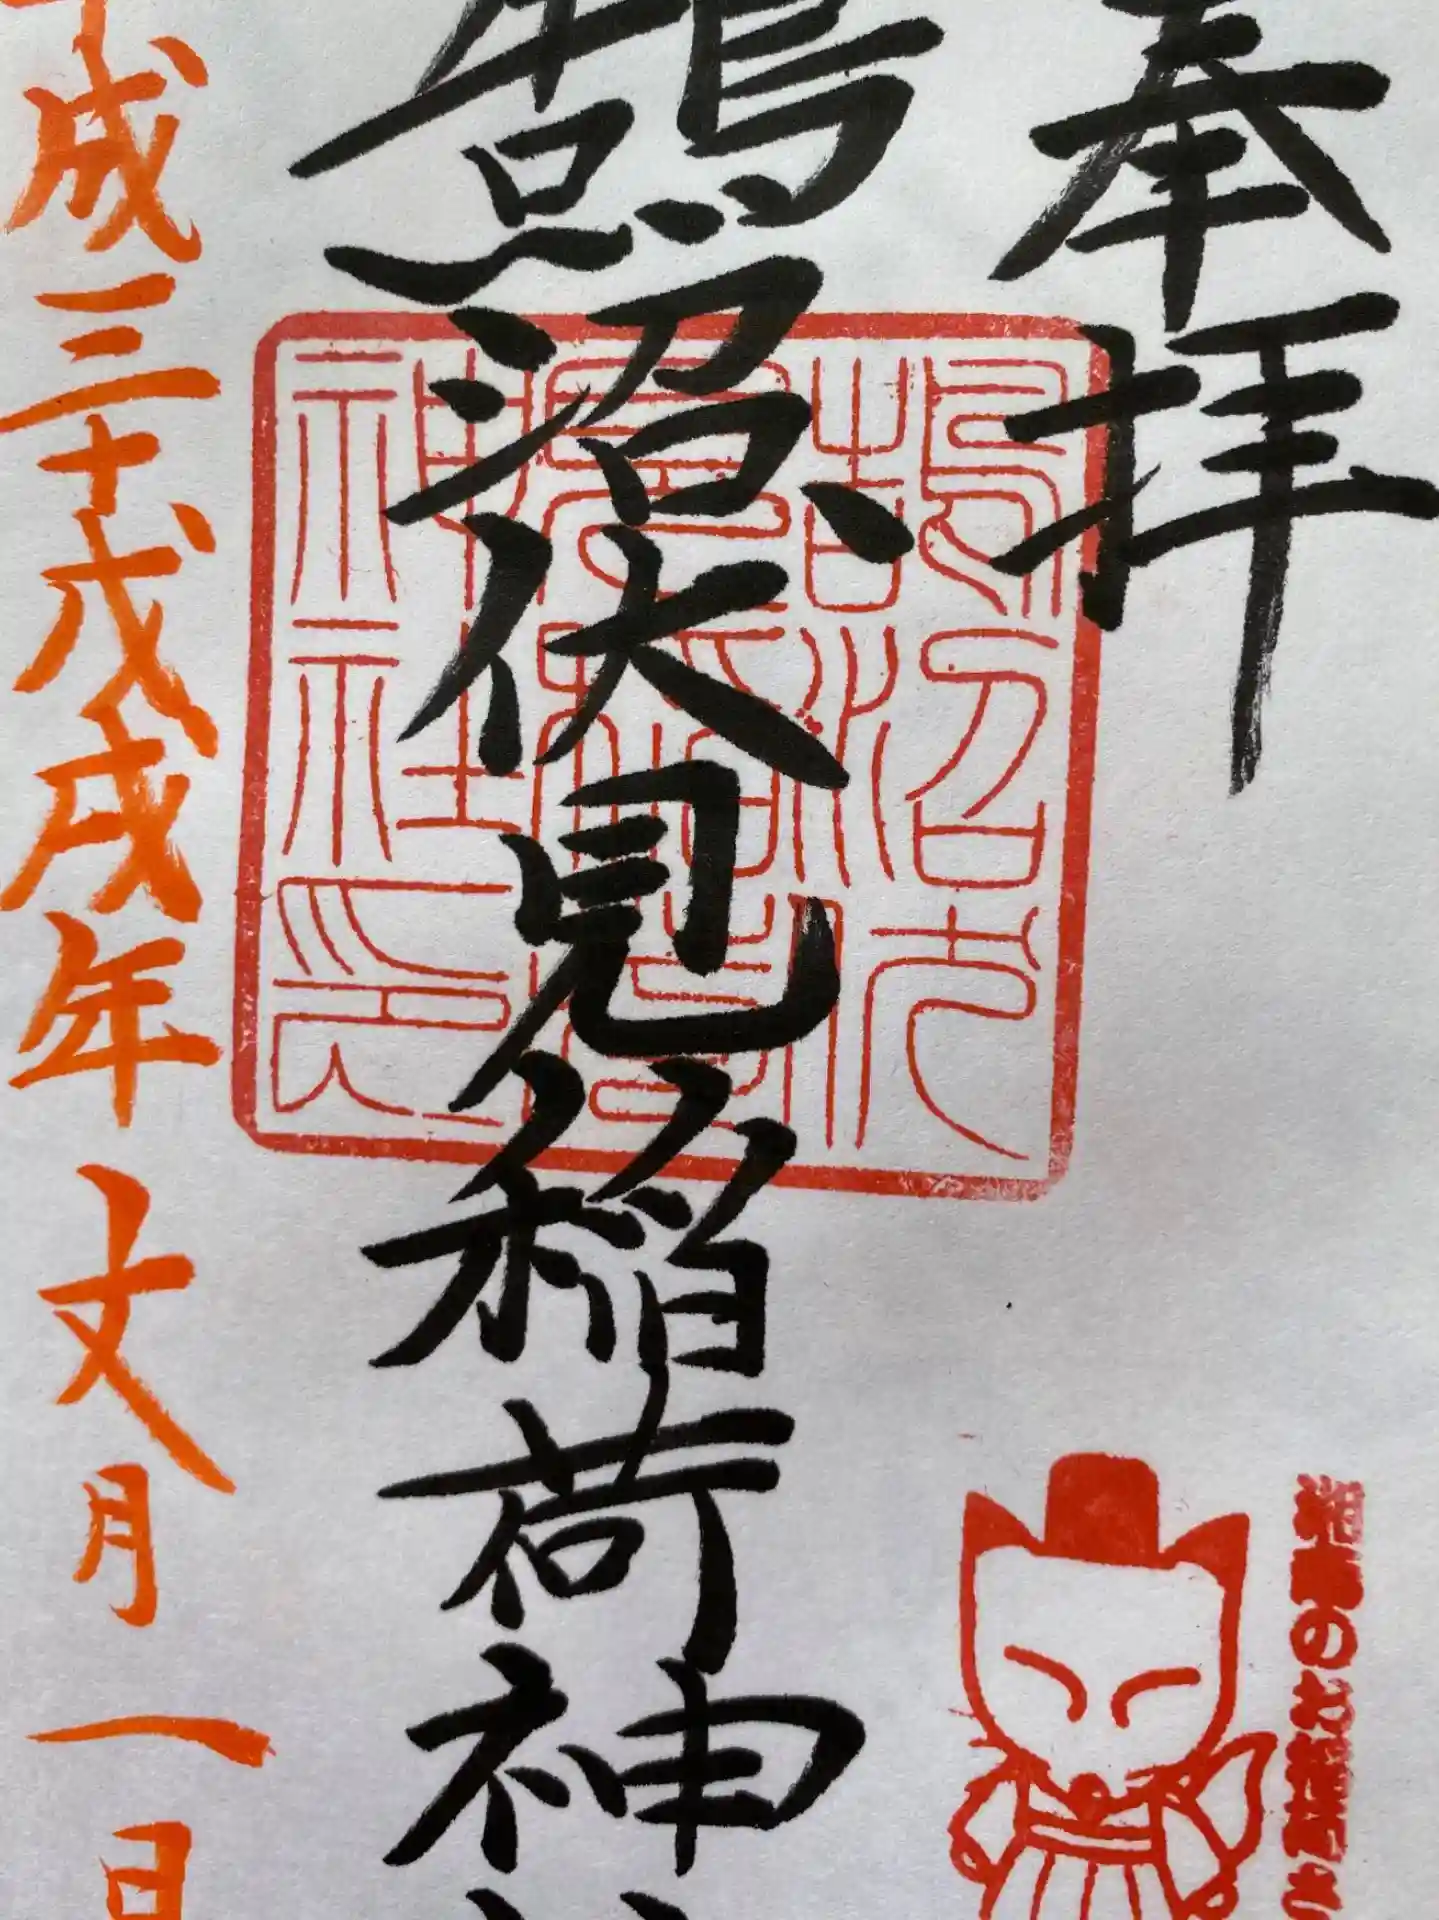 奉拝
鵠沼伏見稲荷神社
鵠沼伏
見稲荷
神社印
湘南のお稲荷さ
平成三十戊戌年文月一日